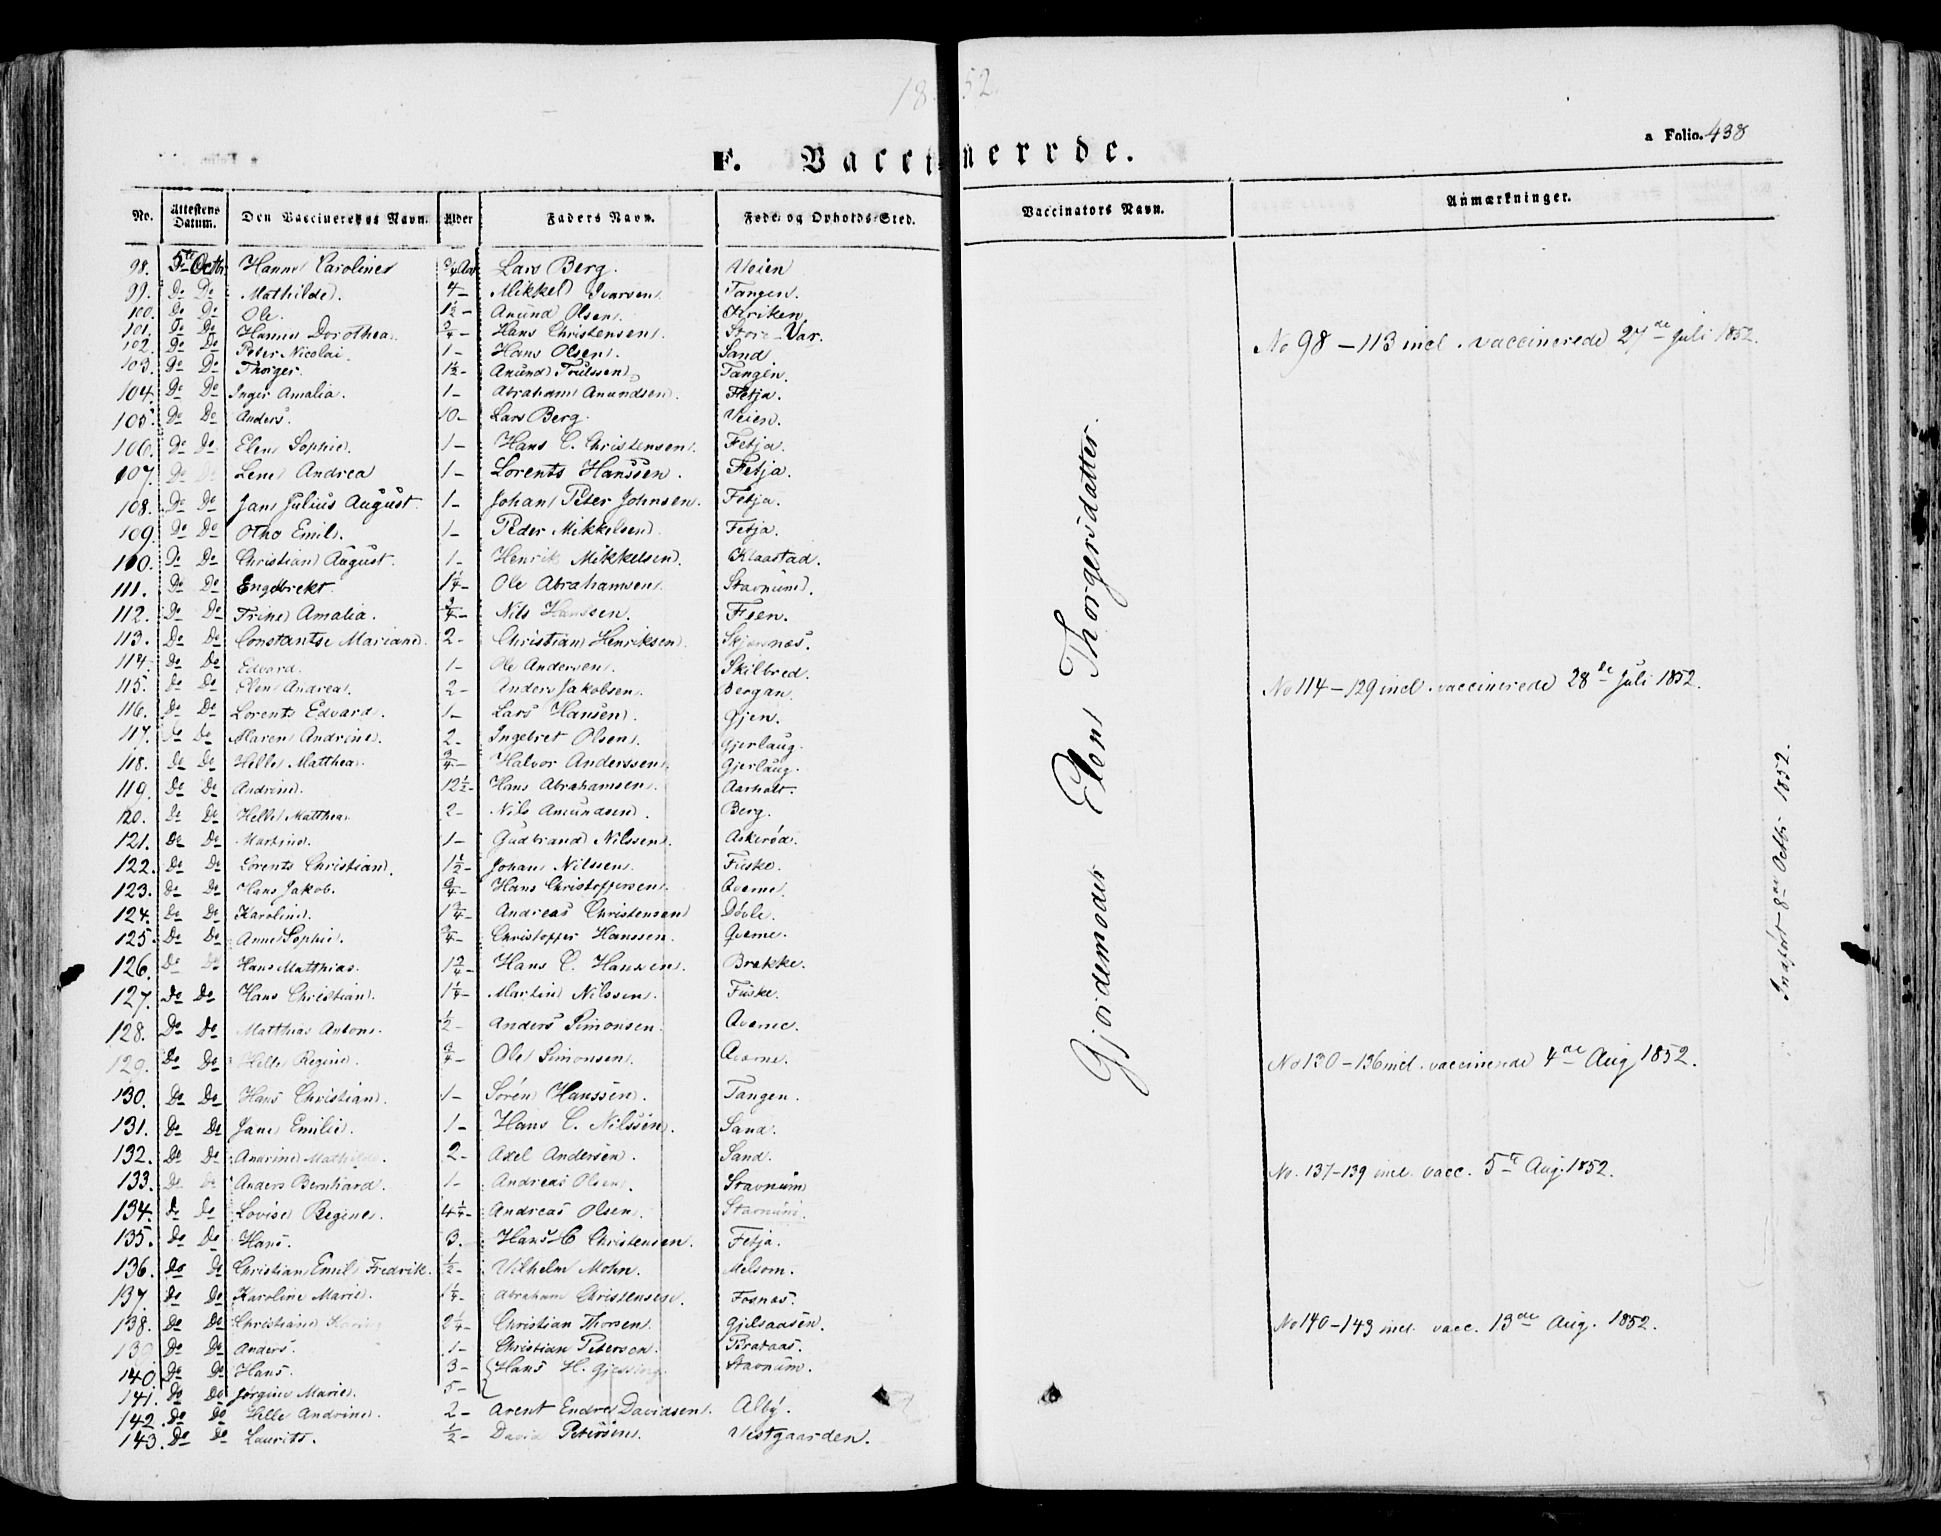 1852.
a Folio. 438
F. Vaccinerede.
No. Attestens Datum. Den Vaccineredes Navn. Alder Faders Navn. Føde- og Opholds-Sted. Vaccinators Navn. Anmærkninger.
98. 5te Octbr Hanne Caroline 3/4 Aar Lars Berg. Veien
99. Do Do Mathilde. 4- Mikkel Ivarsen. Tangen.
100. Do Do Ole. 1½- Anund Olsen.
101. Do Do Hanne Dorothea. 3/4- Hans Christensen. Store-Var.
102. Do Do Peter Nicolai. 1- Hans Olsen. Sand
103. Do Do Thorger. 1½- Anund Tollssen. Tangen.
104. Do Do Inger Amalia. 1- Abraham Anundsen. Fetja.
105. Do Do Anders. 10- Lars Berg. Veien.
106. Do Do Elen Sophie. 1- Hans C. Christensen. Fetja.
107. Do Do Lene Andrea 1- Lorents Hanssen. Fetja.
108. Do Do Jans Julius August. 1- Johan Peter Johnsen. Fetja.
109. Do Do Otho Emil. 1- Peder Mikkelsen. Fetja.
110. Do Do Christian August. 1- Henrik Mikkelsen. Klaastad.
111. Do Do Engebrekt. 1¼- Ole Abrahamsen. Stavnum.
112. Do Do Trine Amalia. 3/4- Nils Hanssen. Feen.
113. Do Do Constantse Mariane. 2- Christian Henriksen. Skjærnæs.
114. Do Do Edvard. 1- Ole Andersen. Skilbred.
115. Do Do Elen Andrea. 2- Anders Jakobsen. Bergan.
116. Do Do Lorents Edvard. 1- Lars Hansen. Øjen.
117. Do Do Maren Andrine. 2- Ingebret Olsen. Gjerlaug.
118. Do Do Helle Matthea. 3/4- Halvor Anderssen. Gjerlaug.
119. Do Do Andrine. 12½- Hans Abrahamsen. Aarholt.
120. Do Do Helle Matthea. 2- Nils Amundsen. Berg.
121. Do Do Martine. 1- Gudbrand Nilssen. Askerød.
122. Do Do Lorents Christian. 1½- Johan Nilssen. Fuske.
123. Do Do Hans Jakob. 3/4- Hans Christoffersen. Qverne.
124. Do Do Karoline. 1 3/4- Andreas Christensen Døvle.
125. Do Do Anne Sophie. 3/4- Christopper Hanssen. Qverne.
126. Do Do Hans Matthias. 1 3/4- Hans C. Hanssen. Brække.
127. Do Do Hans Christian. 1¼- Martin Nilssen. Fuske.
128. Do Do Matthias Anton. ½- Anders Simonsen. Qverne.
129. Do Do Helle Regine. 3/4- Ole Simonsen. Qverne.
130. Do Do Hans Christian. 1- Søren Hanssen. Tangen.
131. Do Do Jane Emilie. 1- Hans C. Nilssen. Sand.
132. Do Do Anarine Mathilde. 2- Axel Andersen. Sand.
133. Do Do Anders Bernhard. 1- Andreas Olsen. Stavnum
134. Do Do Lovise Regine. 4¼- Andreas Olsen. Stavnum.
135. Do Do Hans. 3. Hans C Christensen. Fetja.
136. Do Do Christian Emil Fredrik. ½- Vilhelm Mohn. Melsom.
137. Do Do Karoline Marie. 1¼- Abraham Christensen. Fosnæs.
138. Do Do Christiane 2¼- Christian Thorsen. Gjelsaasen.
139. Do Do Anders. 1- Christian Petersen. Brataas.
140. Do Do Hans. 3- Hans H. Gjessing. Stavnum.
141. Do Do Jørgine Marie. 5-
142. Do Do Helle Andrine. 2- Arent Endre Davidsen. Alby.
143. Do Do Laurits. ½- David Petersen. Vestgaarden.
Gjordemoder Elen Thorgersdatter.
No 98 - 113 incl. vaccinerede 27de Juli 1852.
No 114 - 129 incl. vaccinerede 28de Juli 1852.
No 130 - 136 incl. vaccinerede 4de Aug 1852.
No. 137-139 incl. vacc. 5te Aug. 1852.
No 140-143 incl. vacc. 13de Aug. 1852.
Indført 8de Octbr 1852.